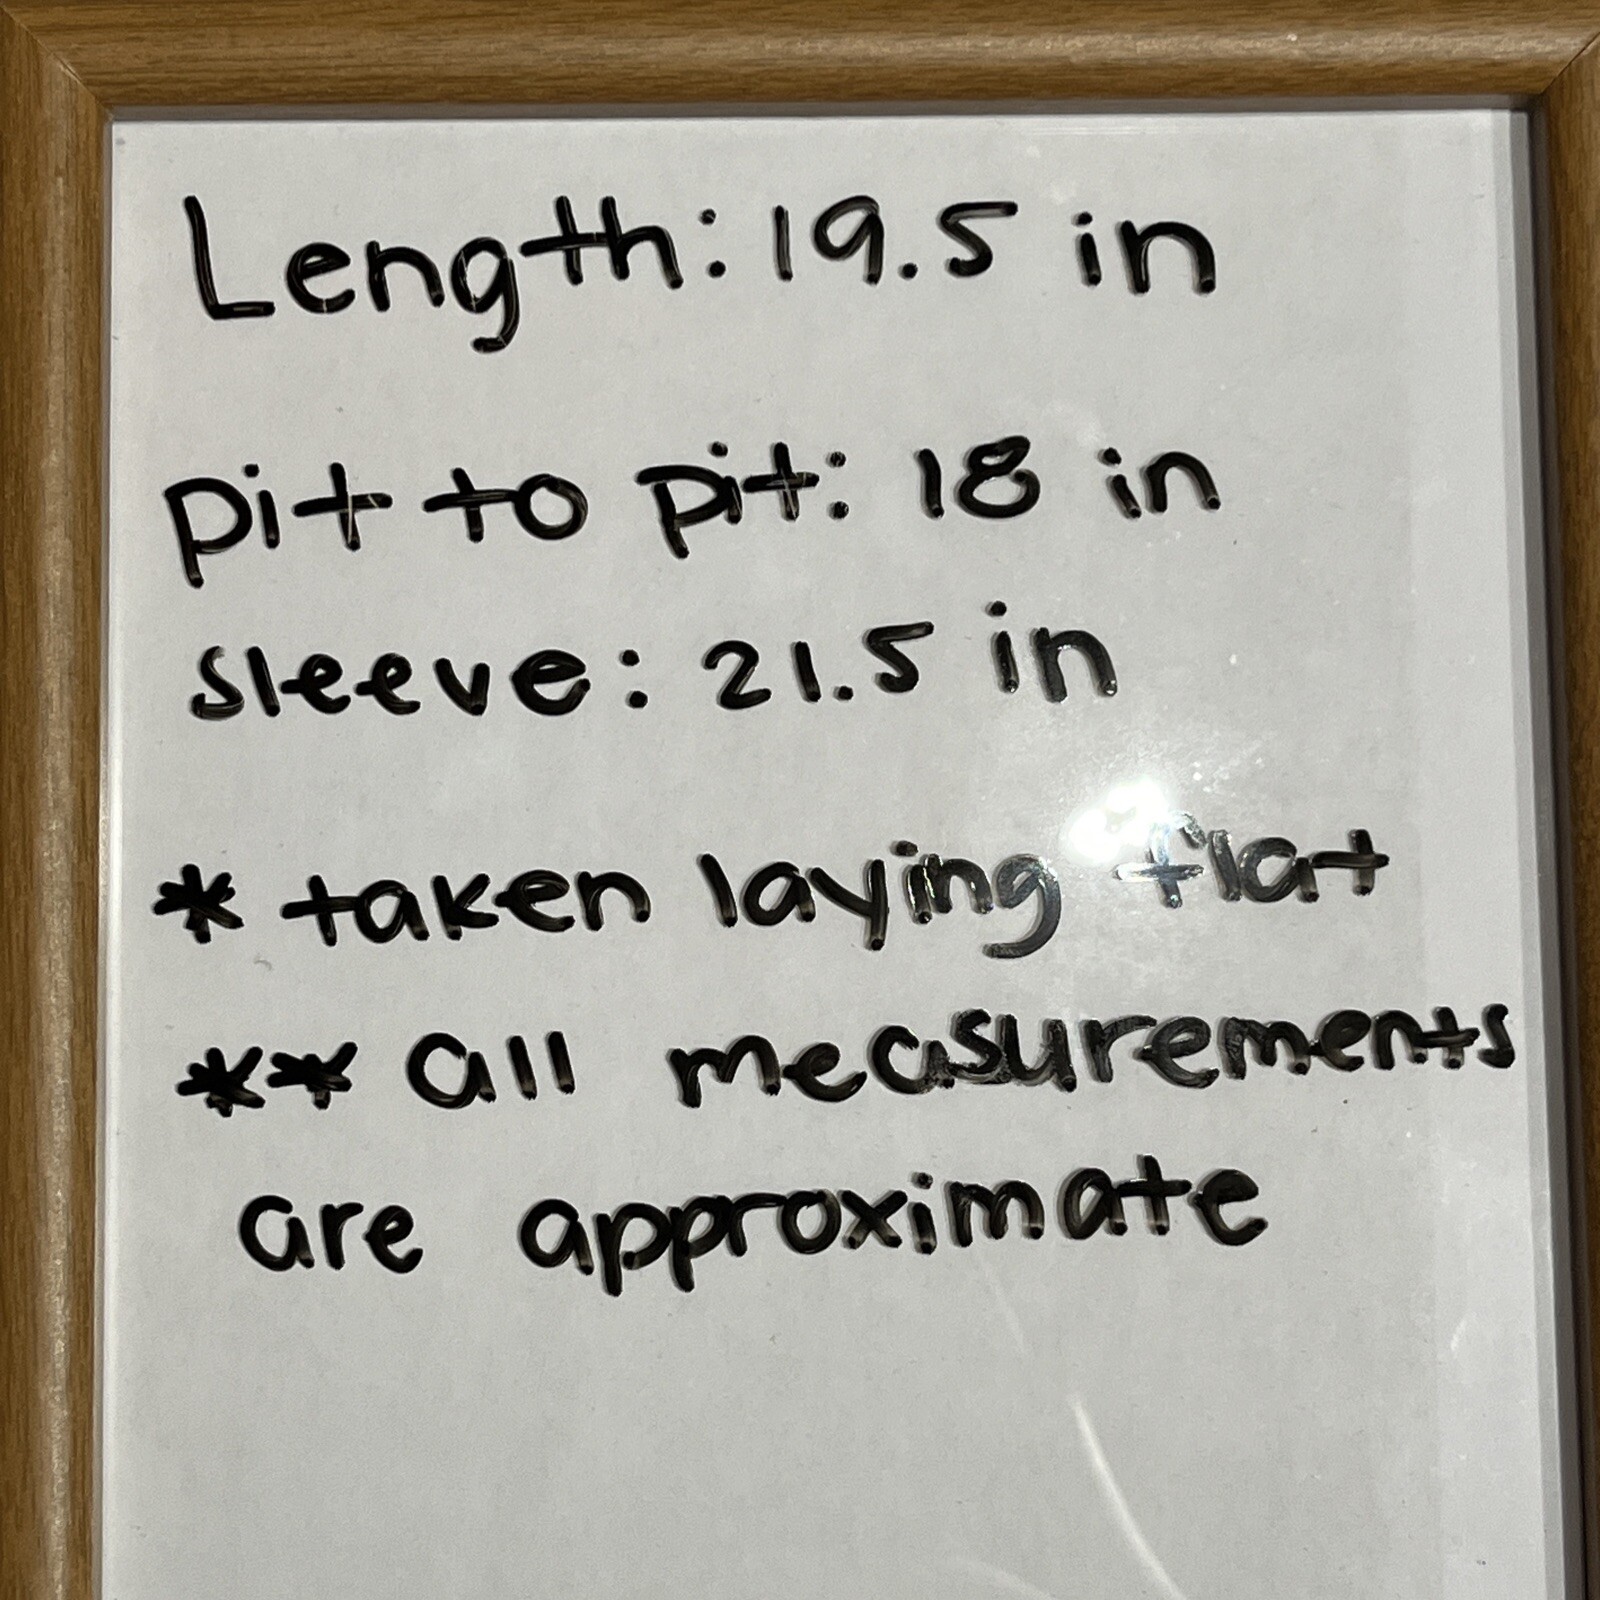 Length: 19.5 in
pit to pit: 18 in
sleeve: 21.5 in
* taken laying flat
** all measurements
are approximate